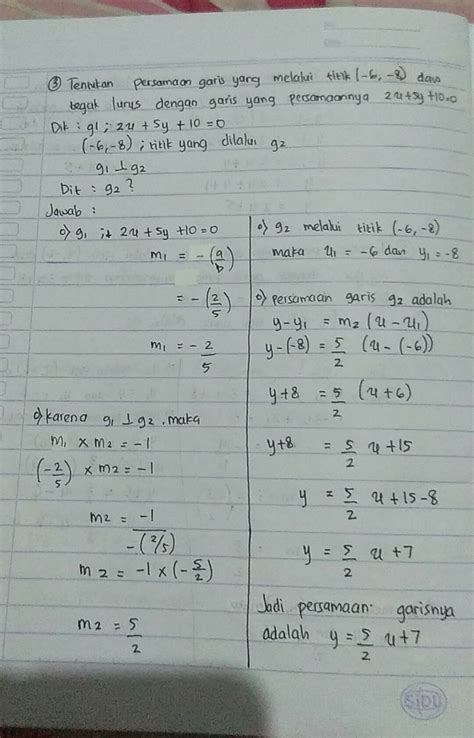 ③ Tentukan persamaan garis yang melalui titik (-6, -8) dan
tegak lurus dengan garis yang persamaannya 2x+5y+10=0
Dik : g1 ; 2x + 5y + 10 = 0
(-6, -8) ; titik yang dilalui g2
g1 ⊥ g2
Dit : g2 ?
Jawab :
o) g1 ; 2x + 5y + 10 = 0
m1 = - (a/b)
= - (2/5)
m1 = - 2/5
o) Karena g1 ⊥ g2 . maka
m1 × m2 = -1
(-2/5) × m2 = -1
m2 = -1/-(2/5)
m2 = -1 × (-5/2)
m2 = 5/2
o) g2 melalui titik (-6, -8)
maka x1 = -6 dan y1 = -8
o) persamaan garis g2 adalah
y - y1 = m2 (x - x1)
y-(-8) = 5/2 (x - (-6))
y+8 = 5/2 (x + 6)
y+8 = 5/2 x + 15
y = 5/2 x + 15 - 8
y = 5/2 x + 7
Jadi persamaan garisnya
adalah y = 5/2 x + 7
SiDU